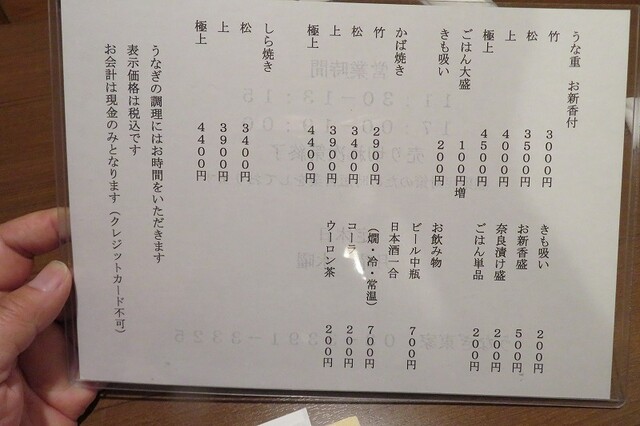 うな重　お新香付
竹　3000円
松　3500円
上　4000円
極上　4500円
ごはん大盛　100円増
きも吸い　200円
かば焼き
竹　2900円
松　3400円
上　3900円
極上　4400円
しら焼き
松　3400円
上　3900円
極上　4400円
きも吸い　200円
お新香盛　500円
奈良漬け盛　200円
ごはん単品　200円
お飲み物
ビール中瓶　700円
日本酒一合
（燗・冷・常温）　700円
コーラ　200円
ウーロン茶　200円
うなぎの調理にはお時間をいただきます
表示価格は税込です
お会計は現金のみとなります（クレジットカード不可）